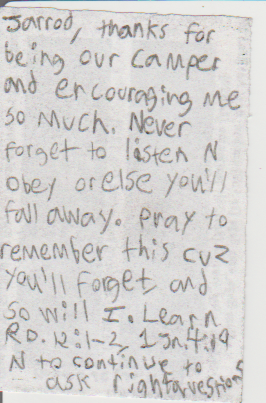 Jarrod, thanks for
being our camper
and encouraging me
so much. Never
forget to listen N
Obey or else you'll
fall away. Pray to
remember this cuz
you'll forget and
so will I. Learn
RO. 12:1-2, 1 Jn.4:19
N to continue to
ask right questions